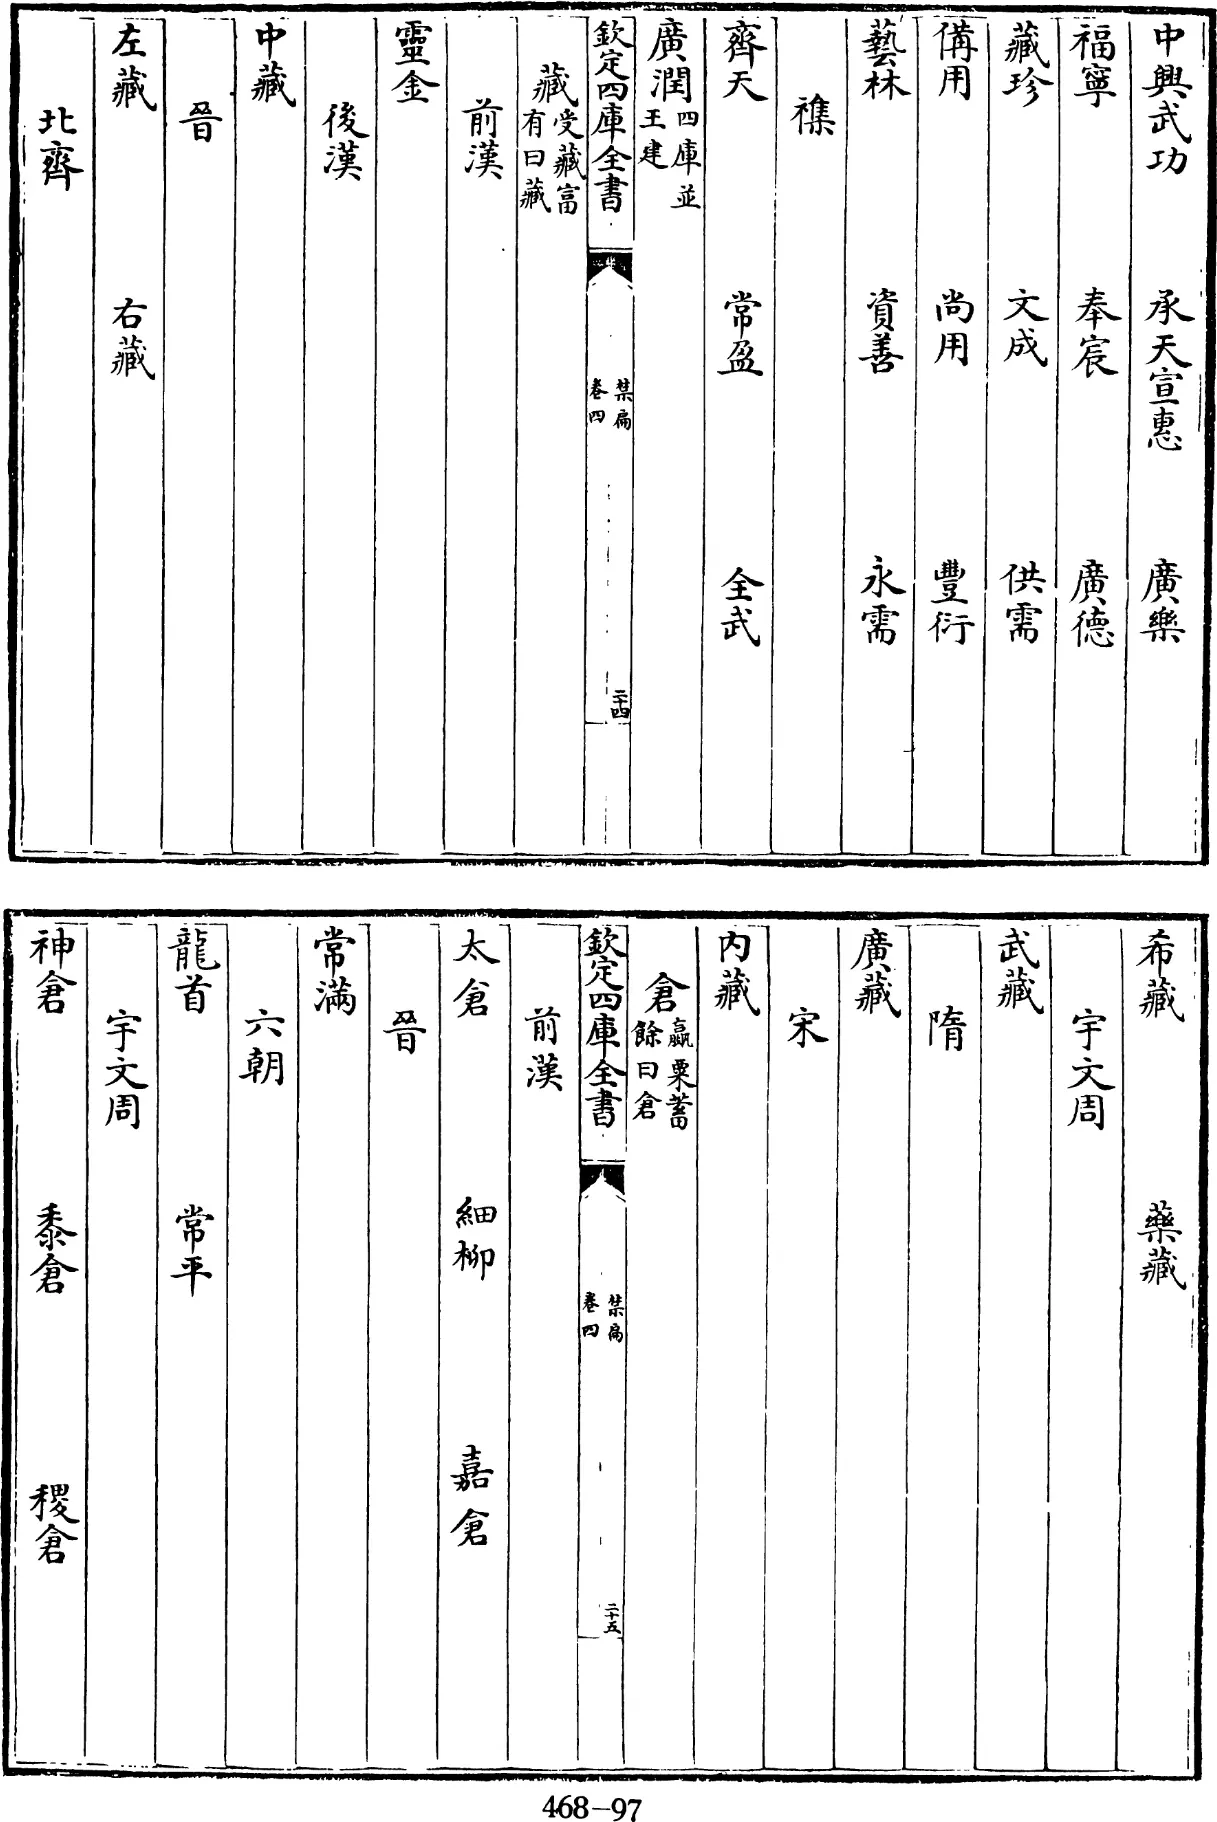 中興武功 承天宣惠 廣樂
福寧 奉宸 廣德
藏珍 文成 供需
備用 尚用 豐衍
藝林 資善 永需
襍
齊天 常盈 全武
廣潤 四庫並王建
欽定四庫全書 禁扁 卷四 二十四
藏 受藏富有曰藏
前漢
靈金
後漢
中藏
晉
左藏 右藏
北齊
希藏 藥藏
宇文周
武藏
隋
廣藏
宋
内藏
倉 贏粟蓄餘曰倉
欽定四庫全書 禁扁 卷四 二十五
前漢
太倉 細柳 嘉倉
晉
常滿
六朝
龍首 常平
宇文周
神倉 黍倉 稷倉
468-97